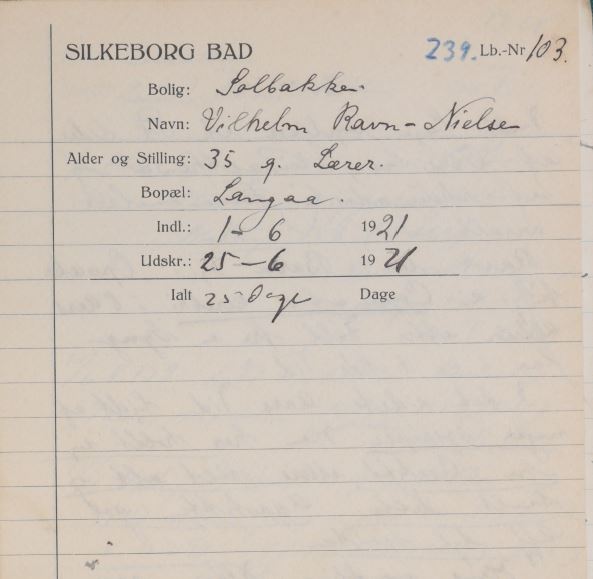 SILKEBORG BAD 239. Lb.-Nr 103.
Bolig: Solbakken
Navn: Vilhelm Ravn-Nielsen
Alder og Stilling: 35 g. Lærer.
Bopæl: Langaa.
Indl.: 1-6 1921
Udskr.: 25-6 1921
Ialt 25 Dage Dage